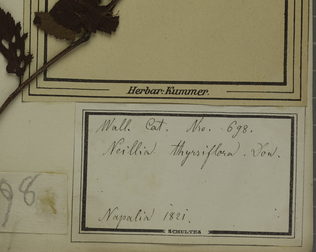 Herbar. Kummer.
Wall. Cat. Nro. 698.
Neillia thyrsiflora. Don.
98
Napalia 1821.
SCHULTES